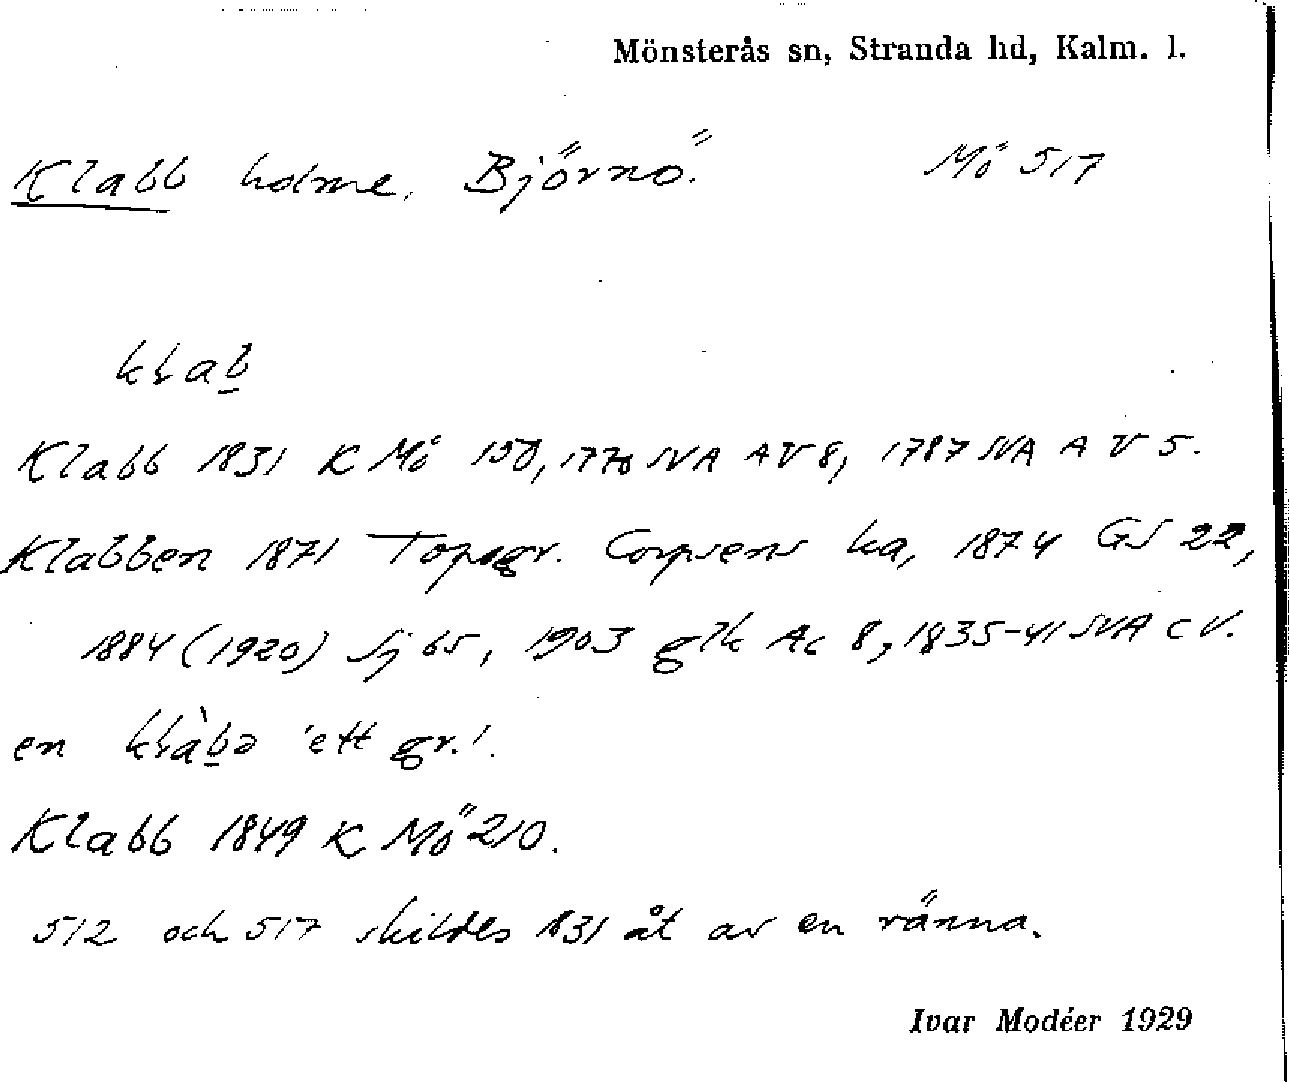 Mönsterås sn, Stranda hd, Kalm. l.
Klabb holme, Björnö. Mö 517
klab̲
Klabb 1831 K Mö 150, 1770 SVA A V 8, 1787 SVA A V 5.
Klabben 1871 Topogr. Corpsens ka, 1874 GS 22,
1884 (1920) Sj 65, 1903 glk Ac 8, 1835-41 SVA C V.
en klàb̲ə 'ett gr.'.
Klabb 1849 K Mö 210.
512 och 517 skildes 1831 åt av en ränna.
Ivar Modéer 1929